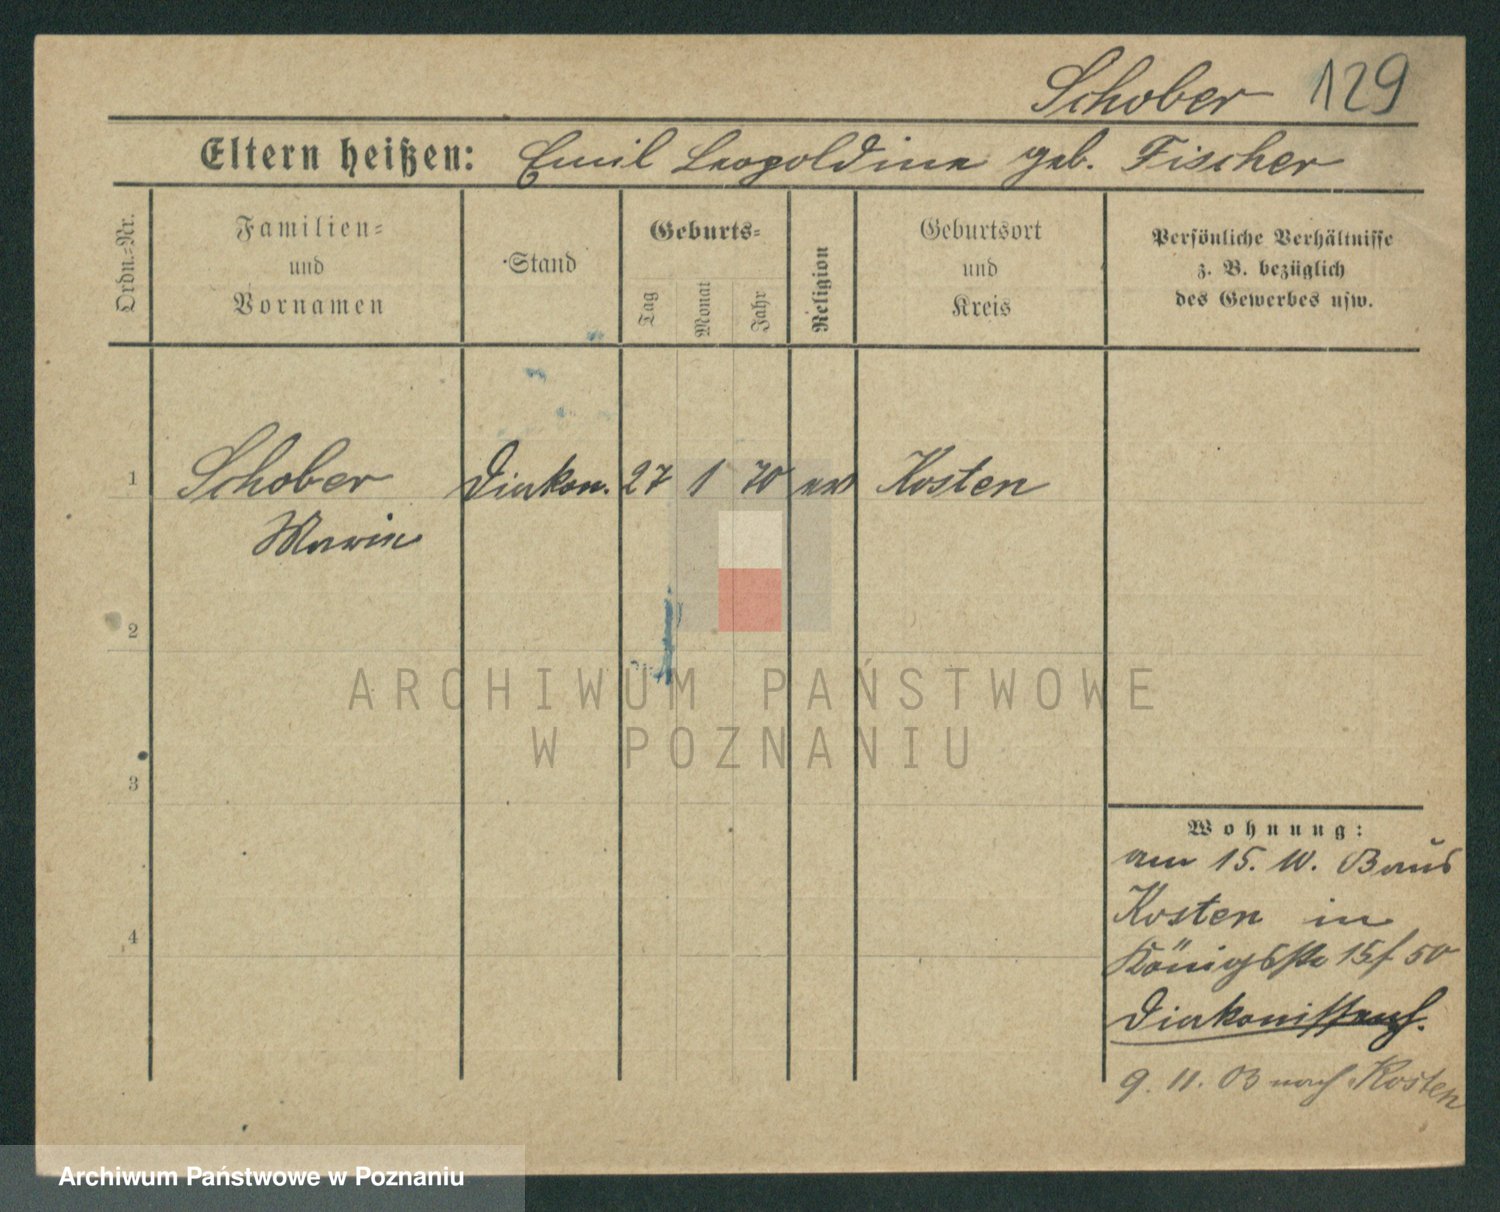 Schober 129
Eltern heißen: Emil Leopoldine geb. Fischer
Ordn.=Nr.
Familien=
und
Vornamen
Stand
Geburts=
Tag
Monat
Jahr
Religion
Geburtsort
und
Kreis
Persönliche Verhältnisse
z. B. bezüglich
des Gewerbes usw.
1 Schober Diakon. 27 1 70 Kosten
Marie
2
3
4
Wohnung:
am 15. 10. 03 aus
Kosten in
Königsstr 15/50
9. 11. 03 nach Kosten
ARCHIWUM PAŃSTWOWE
W POZNANIU
Archiwum Państwowe w Poznaniu